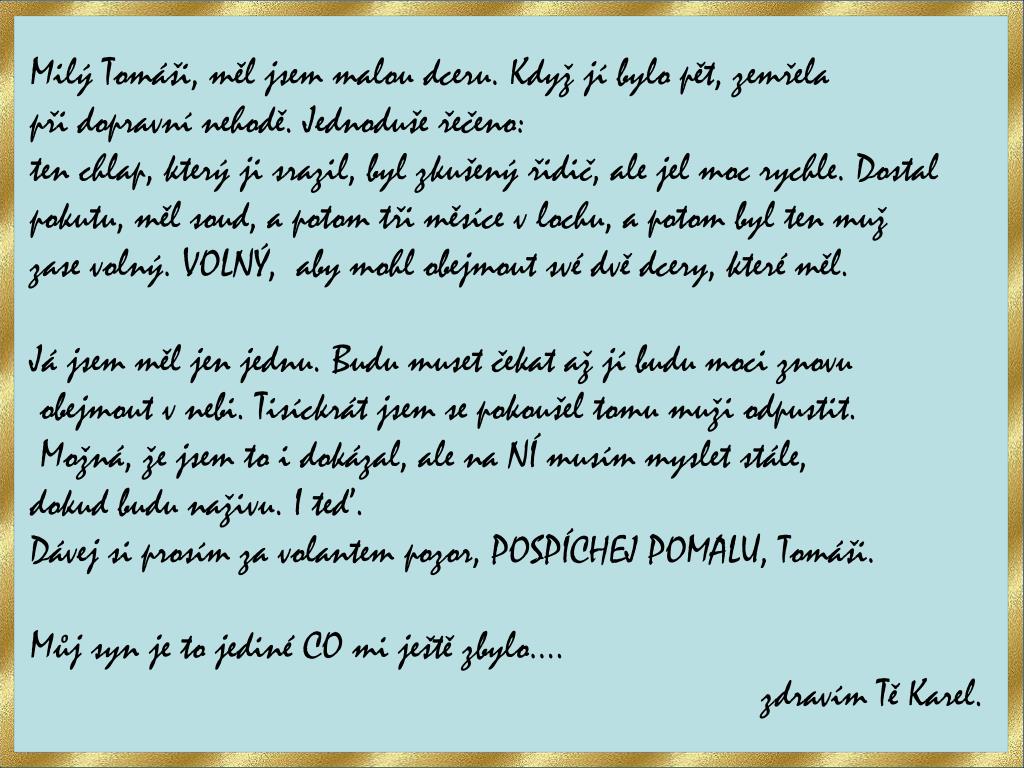 Milý Tomáši, měl jsem malou dceru. Když jí bylo pět, zemřela
při dopravní nehodě. Jednoduše řečeno:
ten chlap, který ji srazil, byl zkušený řidič, ale jel moc rychle. Dostal
pokutu, měl soud, a potom tři měsíce v lochu, a potom byl ten muž
zase volný. VOLNÝ, aby mohl obejmout své dvě dcery, které měl.
Já jsem měl jen jednu. Budu muset čekat až jí budu moci znovu
obejmout v nebi. Tisíckrát jsem se pokoušel tomu muži odpustit.
Možná, že jsem to i dokázal, ale na NÍ musím myslet stále,
dokud budu naživu. I teď.
Dávej si prosím za volantem pozor, POSPÍCHEJ POMALU, Tomáši.
Můj syn je to jediné CO mi ještě zbylo....
zdravím Tě Karel.